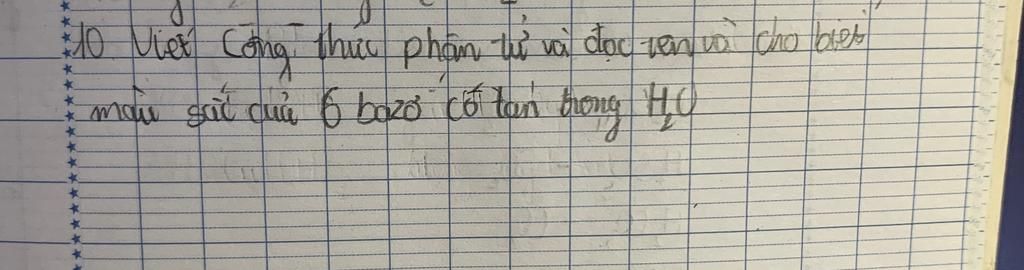 10 Viết Công thức phân tử và đọc tên và cho biết
màu sắt của 6 bazơ có tan trong H₂O